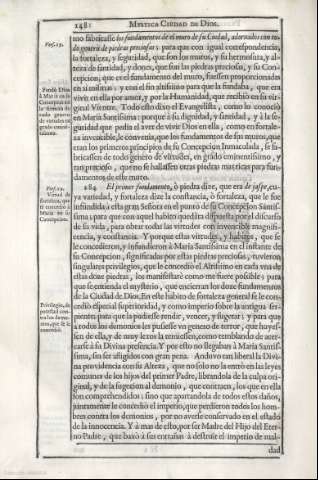 148
MYSTICA CIUDAD DE DIOS.
Vers. 19.
mo fabricasse los fundamentos de el muro de su Ciudad, adornados con todo
genero de piedras preciosas: para que con igual correspondencia,
la fortaleza, y seguridad, que son los muros, y su hermosura, y alteza
de santidad, y dones, que son las piedras preciosas, y su Concepcion,
que es el fundamento del muro, fuessen proporcionadas
en si mismas: y con el fin altissimo para que la fundaba, que era
vivir en ella por amor, y por la Humanidad, que recibiò en su virginal
Vientre. Todo esto dixo el Evangelista, como lo conociò
en Maria Santissima: porque à su dignidad, y santidad, y à la seguridad
que pedia el aver de vivir Dios en ella, como en fortaleza
invencible, le convenia, que los fundamentos de sus muros, que
eran los primeros principios de su Concepcion Inmaculada, se fabricassen
de todo genero de virtudes, en grado eminentissimo, y
tan precioso, que no se hallassen otras piedras mas ricas para fundamentos
de este muro.
284 El primer fundamento, ò piedra dize, que era de jaspe, cuya
variedad, y fortaleza dize la constancia, ò fortaleza, que le fue
infundida à esta gran Señora en el punto de su Concepcion Santissima;
para que con aquel habito quedàra dispuesta por el discurso
de su vida, para obrar todas las virtudes con invencible magnificencia,
y constancia. Y porque estas virtudes, y habitos, que se
le concedieron, y infundieron à Maria Santissima en el instante de
su Concepcion, significados por estas piedras preciosas, tuvieron
singulares privilegios, que le concediò el Altissimo en cada una de
estas doze piedras, los manifestarè como me fuere possible; para
que se entienda el mysterio, que encierran los doze fundamentos
de la Ciudad de Dios. En este habito de fortaleza general se le concediò
especial superioridad, y como imperio sobre la antigua serpiente;
para que la pudiesse rendir, vencer, y sugetar: y para que
à todos los demonios les pusiesse un genero de terror, que huyessen
de ella, y de muy lexos la temiessen, como temblando de acercarse
à su Divina presencia. Y por esto no llegaban à Maria Santissima,
sin ser afligidos con gran pena. Anduvo tan liberal la Divina
providencia con su Alteza, que no solo no la entrò en las leyes
comunes de los hijos del primer Padre, librandola de la culpa original,
y de la sugecion al demonio, que contraen, los que en ella
son comprehendidos; sino que apartandola de todos estos daños,
juntamente le concediò el imperio, que perdieron todos los hombres
contra los demonios, por no averse conservado en el estado
de la innocencia. Y à mas de esto, por ser Madre del Hijo del Eterno
Padre, que baxò à sus entrañas à destruir el imperio de maldad